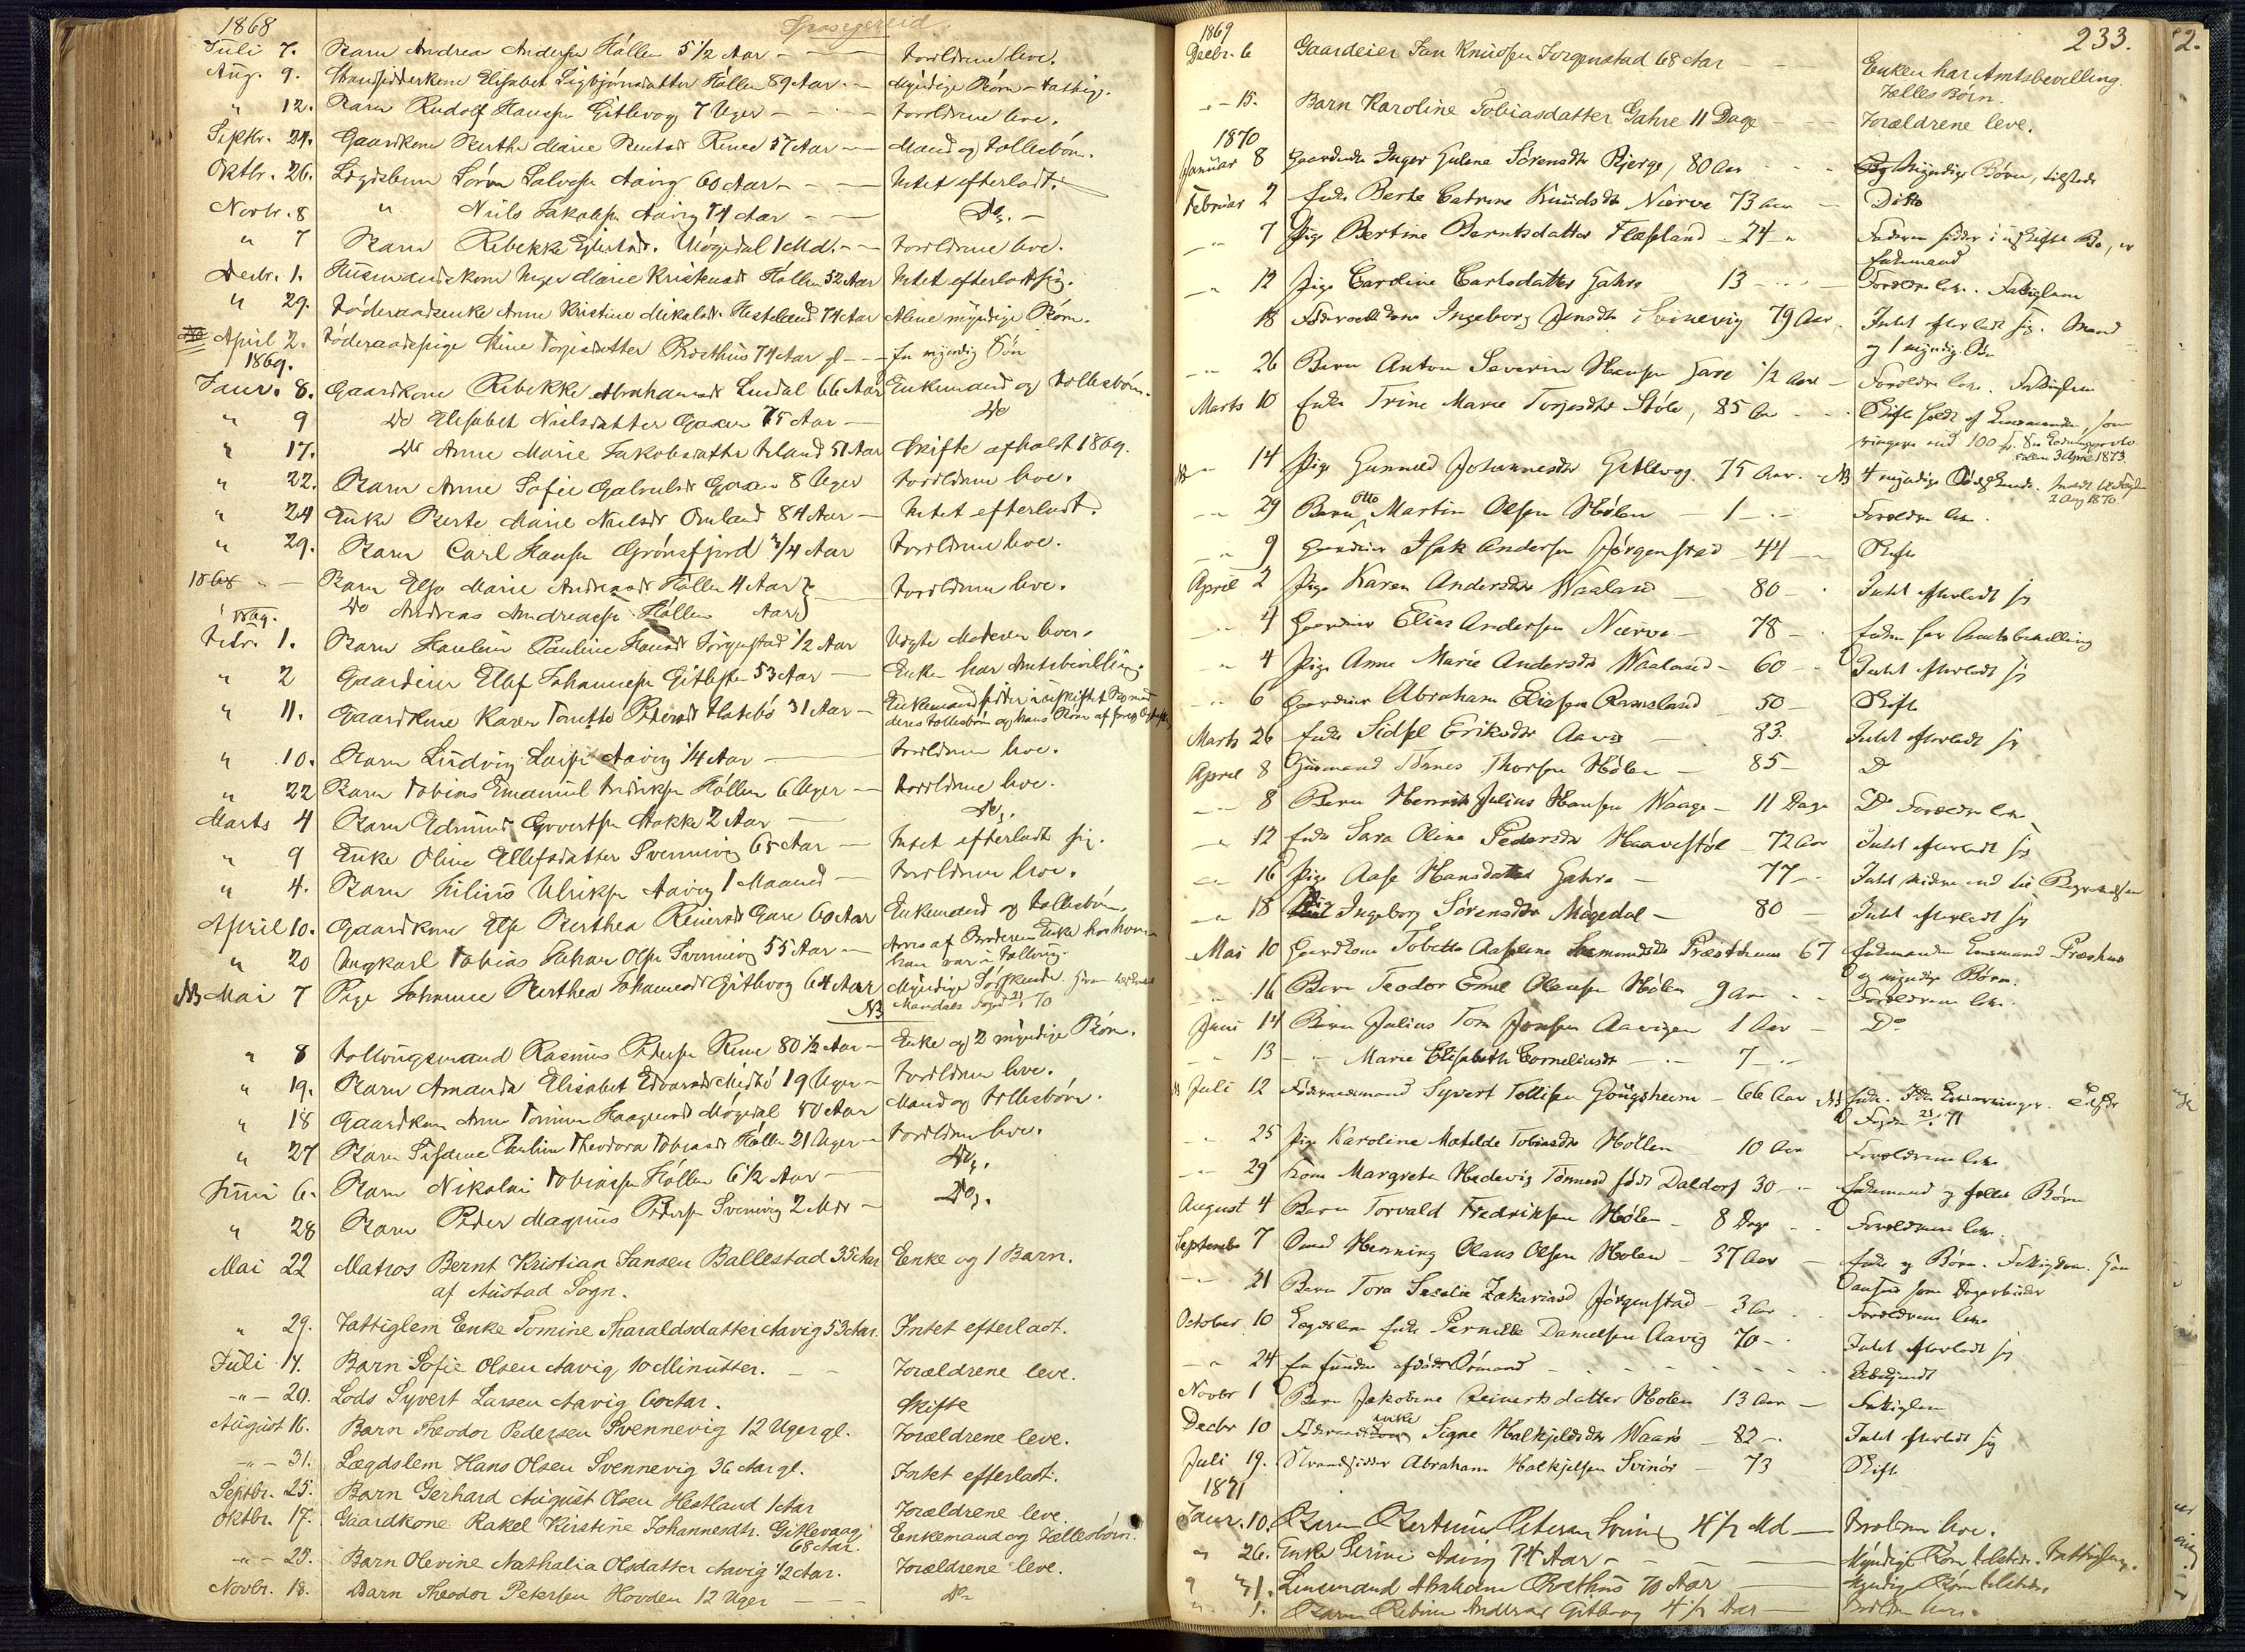 1868
Juli 7. Barn Andrea Andersen Hållen 5 1/2 Aar - Foreldrene leve.
Aug. 9. Elisabet Sigbjörnsdatter Hållen 89 Aar. - Myndige Börn - fattig.
" 12. Barn Rudolf Hansen Gitlevog 7 Uger - Foreldrene leve.
Septbr. 24. Gaardkone Berthe Marie 57 Aar - Mand og Fællesbörn.
Oktbr. 26. Lægdslem Sören Salvesen Aavig 60 Aar - Intet efterladt.
Novbr. 8 " Niels Jakobsen Aavig 74 Aar - Do. -
" 7 Barn Rebekke Mögedal 1 Md. - Foreldrene leve.
Decbr. 1. Husmandskone Inger Marie Hållen 52 Aar Intet efterladt sig.
" 29. Föderaadsenke Anne Kristine Mikelsdtr. Hesteland 74 Aar Alene myndige Börn.
April 2. Föderaadspige Stine Torjesdatter Præsthus 74 Aar gl - En myndig Sön
1869.
Janr. 8. Gaardkone Rebekke Abrahamsdtr Lindal 66 Aar Enkemand og Fællesbörn.
" 9 Do Elisabet Nielsdatter Gaare 75 Aar - Do
" 17. Do Anne Marie Jakobsdatter 51 Aar Skifte afholdt 1869.
" 22. Barn Anne Sofie Gaare 8 Uger Foreldrene leve.
" 24 Enke Berte Marie Nielsdtr Omland 84 Aar - Intet efterladt.
" 29. Barn Carl Hansen Grönsfjord 3/4 Aar Foreldrene leve.
1868 " - Barn Elsa Marie Andreasdtr Hållen 4 Aar Foreldrene leve.
Do Andreas Andreassen Hållen Aar
1869.
Febr. 1. Barn Pauline Hansdtr Jörgenstad 1/2 Aar Uægte Moderen lever.
" 2 Gaardeier Ellef Johannesen Gitlesen 53 Aar - Enken har Amtsbevilling.
" 11. Gaardkone Karen Tonette Pedersdtr 31 Aar - Enkemand sidder i uskiftet Bo med
deres Fællesbörn og hans Börn af forrige
" 10. Barn Ludvig Larsen Aavig 1/4 Aar - Foreldrene leve.
" 22 Barn Tobias Emanuel Fredriksen Hållen 6 Uger - Foreldrene leve.
Marts 4 Barn Edmund Govertsen Stokke 2 Aar - Do.
" 9 Enke Oline Ellefsdatter Svennevig 65 Aar - Intet efterladt sig.
" 4. Barn Julius Ulriksen Aavig 1 Maaned - Foreldrene leve.
April 10. Gaardkone Else Berthea Reiersdtr Gare 60 Aar Enkemand og Fællesbörn.
" 20 Ungkarl Tobias Johan Olsen Svennevig 55 Aar - Arves af Broderens Enke hos hvem
han var i
NB Mai 7 Pige Johanne Berthea Johannesdtr Gitlevog 64 Aar Myndige Söskende.
NB Mandals Foged 70
" 8 Rasmus Pedersen 80 1/2 Aar - Enke og 2 myndige Börn.
" 19. Barn Amanda Elisabet Edvardsdtr Midbö 19 Uger - Foreldrene leve.
" 18 Gaardkone Anne Tomine Haagensdtr Mögedal 50 Aar Mand og Fællesbörn.
" 27 Barn Theodora Tobiasdtr Hållen 21 Uger - Foreldrene leve.
Juni 6. Barn Nikolai Tobiassen Hållen 6 1/2 Aar - Do.
" 28 Barn Peder Magnus Pedersen Svennevig 2 Mdr - Do.
Mai 22 Matros Bernt Kristian Jansen Ballestad 35 Aar Enke og 1 Barn.
af Austad Sogn.
" 29. Fattiglem Enke Tomine Tharaldsdatter Aavig 53 Aar. Intet efterladt.
Juli 14. Barn Sofie Olsen Aavig 10 Minutter. - Forældrene leve.
-"- 20. Lods Syvert Larsen Aavig 60 Aar. Skifte
August 16. Barn Theodor Pedersen Svennevig 12 Uger gl. Forældrene leve.
-"- 31. Lægdslem Hans Olsen Svennevig 36 Aar gl. Intet efterladt.
Septbr. 25. Barn Gerhard August Olsen Hestland 1 Aar Forældrene leve.
Oktbr. 17. Gaardkone Rakel Kirstine Johannesdtr. Gitlevaag Enkemand og Fællesbörn.
68 Aar.
-"- 25. Barn Olevine Nathalia Olsdatter Aavig 1/2 Aar. Forældrene leve.
Novbr. 18. Barn Theodor Petersen Hovden 12 Uger - Do
233.
1869
Decbr. 6 Gaardeier Jan Knudsen Jorgenstad 68 Aar - Enken har Amtsbevilling.
Fælles Börn.
-"- 15. Barn Karoline Tobiasdatter Gahre 11 Dage - Forældrene leve.
1870
Januar 8 Inger Gulene Sörensdtr Bjerge, 80 Aar - Myndige Börn, tilstede
Februar 2 Enke Berte Catrine Knudsdtr Nærve 73 Aar - Ditto
-"- 7 Pige Bertine Berntsdatter Flæsland - 24 - Faderen sidder i uskiftet Bo, er
Enkemand
-"- 12 Pige Caroline Carlsdatter Gahre 13 - Forældre leve. Fattiglem
18 Föderaadskone Ingeborg Jensdtr Svinevig 79 Aar. Intet efterladt sig. Mand
og 1 myndig
-"- 26 Barn Anton Severin Hansen Gare 1/2 Aar - Forældre leve. Fattiglem
Marts 10 Enke Trine Marie Torjesdtr Stöle, 85 Aar - Skifte holdt af Lensmanden, som
3 April 1873.
NB -"- 14 Pige Gunnild Johannesdtr Gitlevog. 75 Aar. NB 4 myndige Södskende.
2 Aug 1870.
-"- 29 Barn Otto Martin Olsen Hölen - 1 - Forældre leve.
-"- 9 Gaardeier Isak Andersen Jörgenstad - 44 - Skifte
April 2 Pige Karen Andersdtr Waaland 80 - Intet efterladt sig
-"- 4 Gaardeier Elias Andersen Nærve - 78 - Enken har Amtsbevilling
-"- 4 Pige Anne Marie Andersdtr Waaland - 60 - Intet efterladt sig
-"- 6 Gaardeier Abraham Eliasen Ramsland 50 - Skifte
Marts 26 Enke Sidsel Eriksdtr Aavig 83. Intet efterladt sig
April 8 Husmand Tönnes Thorsen Hölen - 85 - Do
-"- 8 Barn Henrik Julius Hansen Waage - 11 Dage Do Forældre leve
-"- 12 Enke Sara Oline Pedersdtr Haavestöl - 72 Aar Intet efterladt sig
-"- 16 Pige Aase Hansdatter Gahre - 77 - Intet videre end til Begravelsen
-"- 18 Pige Ingeborg Sörensdtr Mögedal - 80 - Intet efterladt sig
Mai 10 Gaardkone Tobetta Aaseline Præsthuus 67 Enkemanden Lensmand Præsthus
og myndige Börn.
-"- 16 Barn Teodor Emil Olausen Hölen 9 Aar - Forældrene leve
Juni 14 Barn Julius Tom Jensen Aavigen 1 Aar - Do
-"- 13 -"- Marie Elisabeth Corneliusdtr - 7 -
NB Juli 12 Föderaadsmand Syvert Tollisen Gougsheim - 66 Aar NB Enke.
71
-"- 25 Pige Karoline Matilde Tobiasdtr Hollen 10 Aar Forældrene leve
-"- 29 Kone Margrete Hedevig Tönnesd född Daldorf 30 - Enkemand og fælles Börn
August 4 Barn Torvald Fredriksen Hölen - 8 Dage Forældrene leve
September 7 Henning Olaus Olsen Holen - 37 Aar - Enke og Börn. Fattigdom.
-"- 21 Barn Tora Seselie Zakariasd Jörgenstad - 3 Aar - Forældrene leve
October 10 Lægdslem Enke Pernille Danielsen Aavig 70 - Intet efterladt sig
-"- 24 En funden afdöd Sömand - Ubekjendt
Novbr 1 Barn Jakobine Reinertsdatter Holen 13 Aar - Fattiglem
Decbr 10 enke Signe Halkjeldsdtr Waarö - 82 - Intet efterladt sig
Juli 19. Strandsidder Abraham Halkjelsen Svinör - 73 Skifte
1871
Janr. 10. Barn Petersen 4 1/2 Md - Foreldrene leve.
" 26. Enke Serine Aavig 74 Aar - Myndige Börn tilstede. Fattiglem.
" 31. Lensmand Abraham Præsthus 70 Aar - Myndige Börn tilstede.
" 1. Barn Gitlevog 4 1/2 Aar - Foreldre leve.